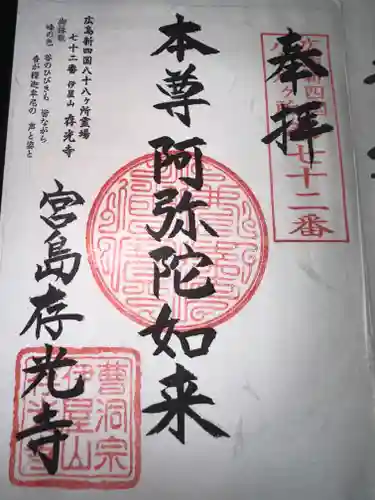 奉拝
広島新四国八十八ヶ所霊場
七十二番
本尊阿弥陀如来
広島新四国八十八ヶ所霊場
七十二番 伊屋山 存光寺
御詠歌
峰の色 谷のひびきも 皆ながら
吾が釋迦牟尼の 声と姿と
宮島存光寺
曹洞宗
伊屋山
存光寺